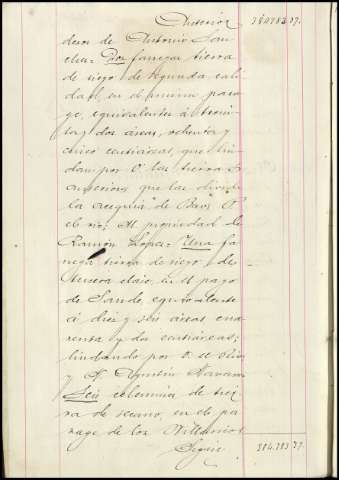 Anterior 384.783.37.
deros de Antonio Sanchez. Dos fanegas tierra
de riego de segunda cali-
dad, en el mismo para-
ge, equivalentes á trein-
ta y dos áreas, ochenta y
cinco centiáreas, que lin-
dan por O. las tierras
anteriores que las divide
la acequia de
el rio; M. propiedad de
Ramón Lopez. Una fa-
nega tierra de riego de
tercera clase, en el pago
de equivalente
á diez y seis áreas cua-
renta y dos centiáreas;
lindando por O. el Rio
y N. Agustin Navarro
Seis celemines de tier-
ra de secano, en el pa-
rage de los
Sigue 384.783.37.